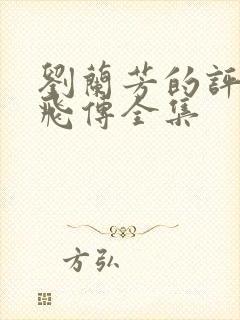 劉蘭芳的評
飛傳全集
方弘